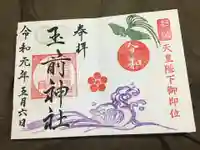 奉拝
玉前神社
令和元年五月六日
令和
祝
天皇陛下御即位